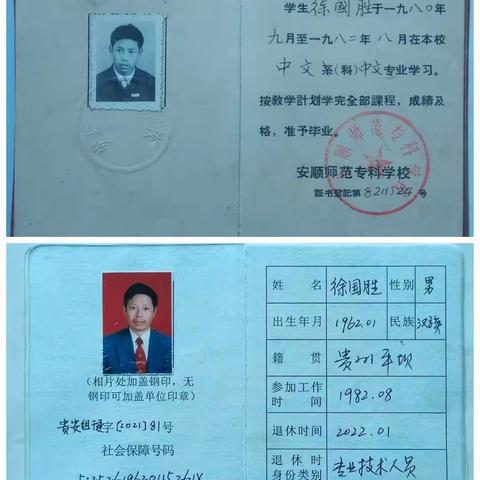 学生徐國胜于一九八〇年
九月至一九八二年八月在本校
中文系(科)中文专业学习。
按教学計划学完全部課程，成績及
格，准予毕业。
安顺师范专科学校
証书登記第8211524号
安顺师范专科学校
姓名 徐国胜 性别 男
出生年月 1962.01 民族 汉族
籍贯 贵州平坝
参加工作时间 1982.08
退休时间 2022.01
退休时身份类别 专业技术人员
(相片处加盖钢印，无
钢印可加盖单位印章)
字[2021]81号
社会保障号码